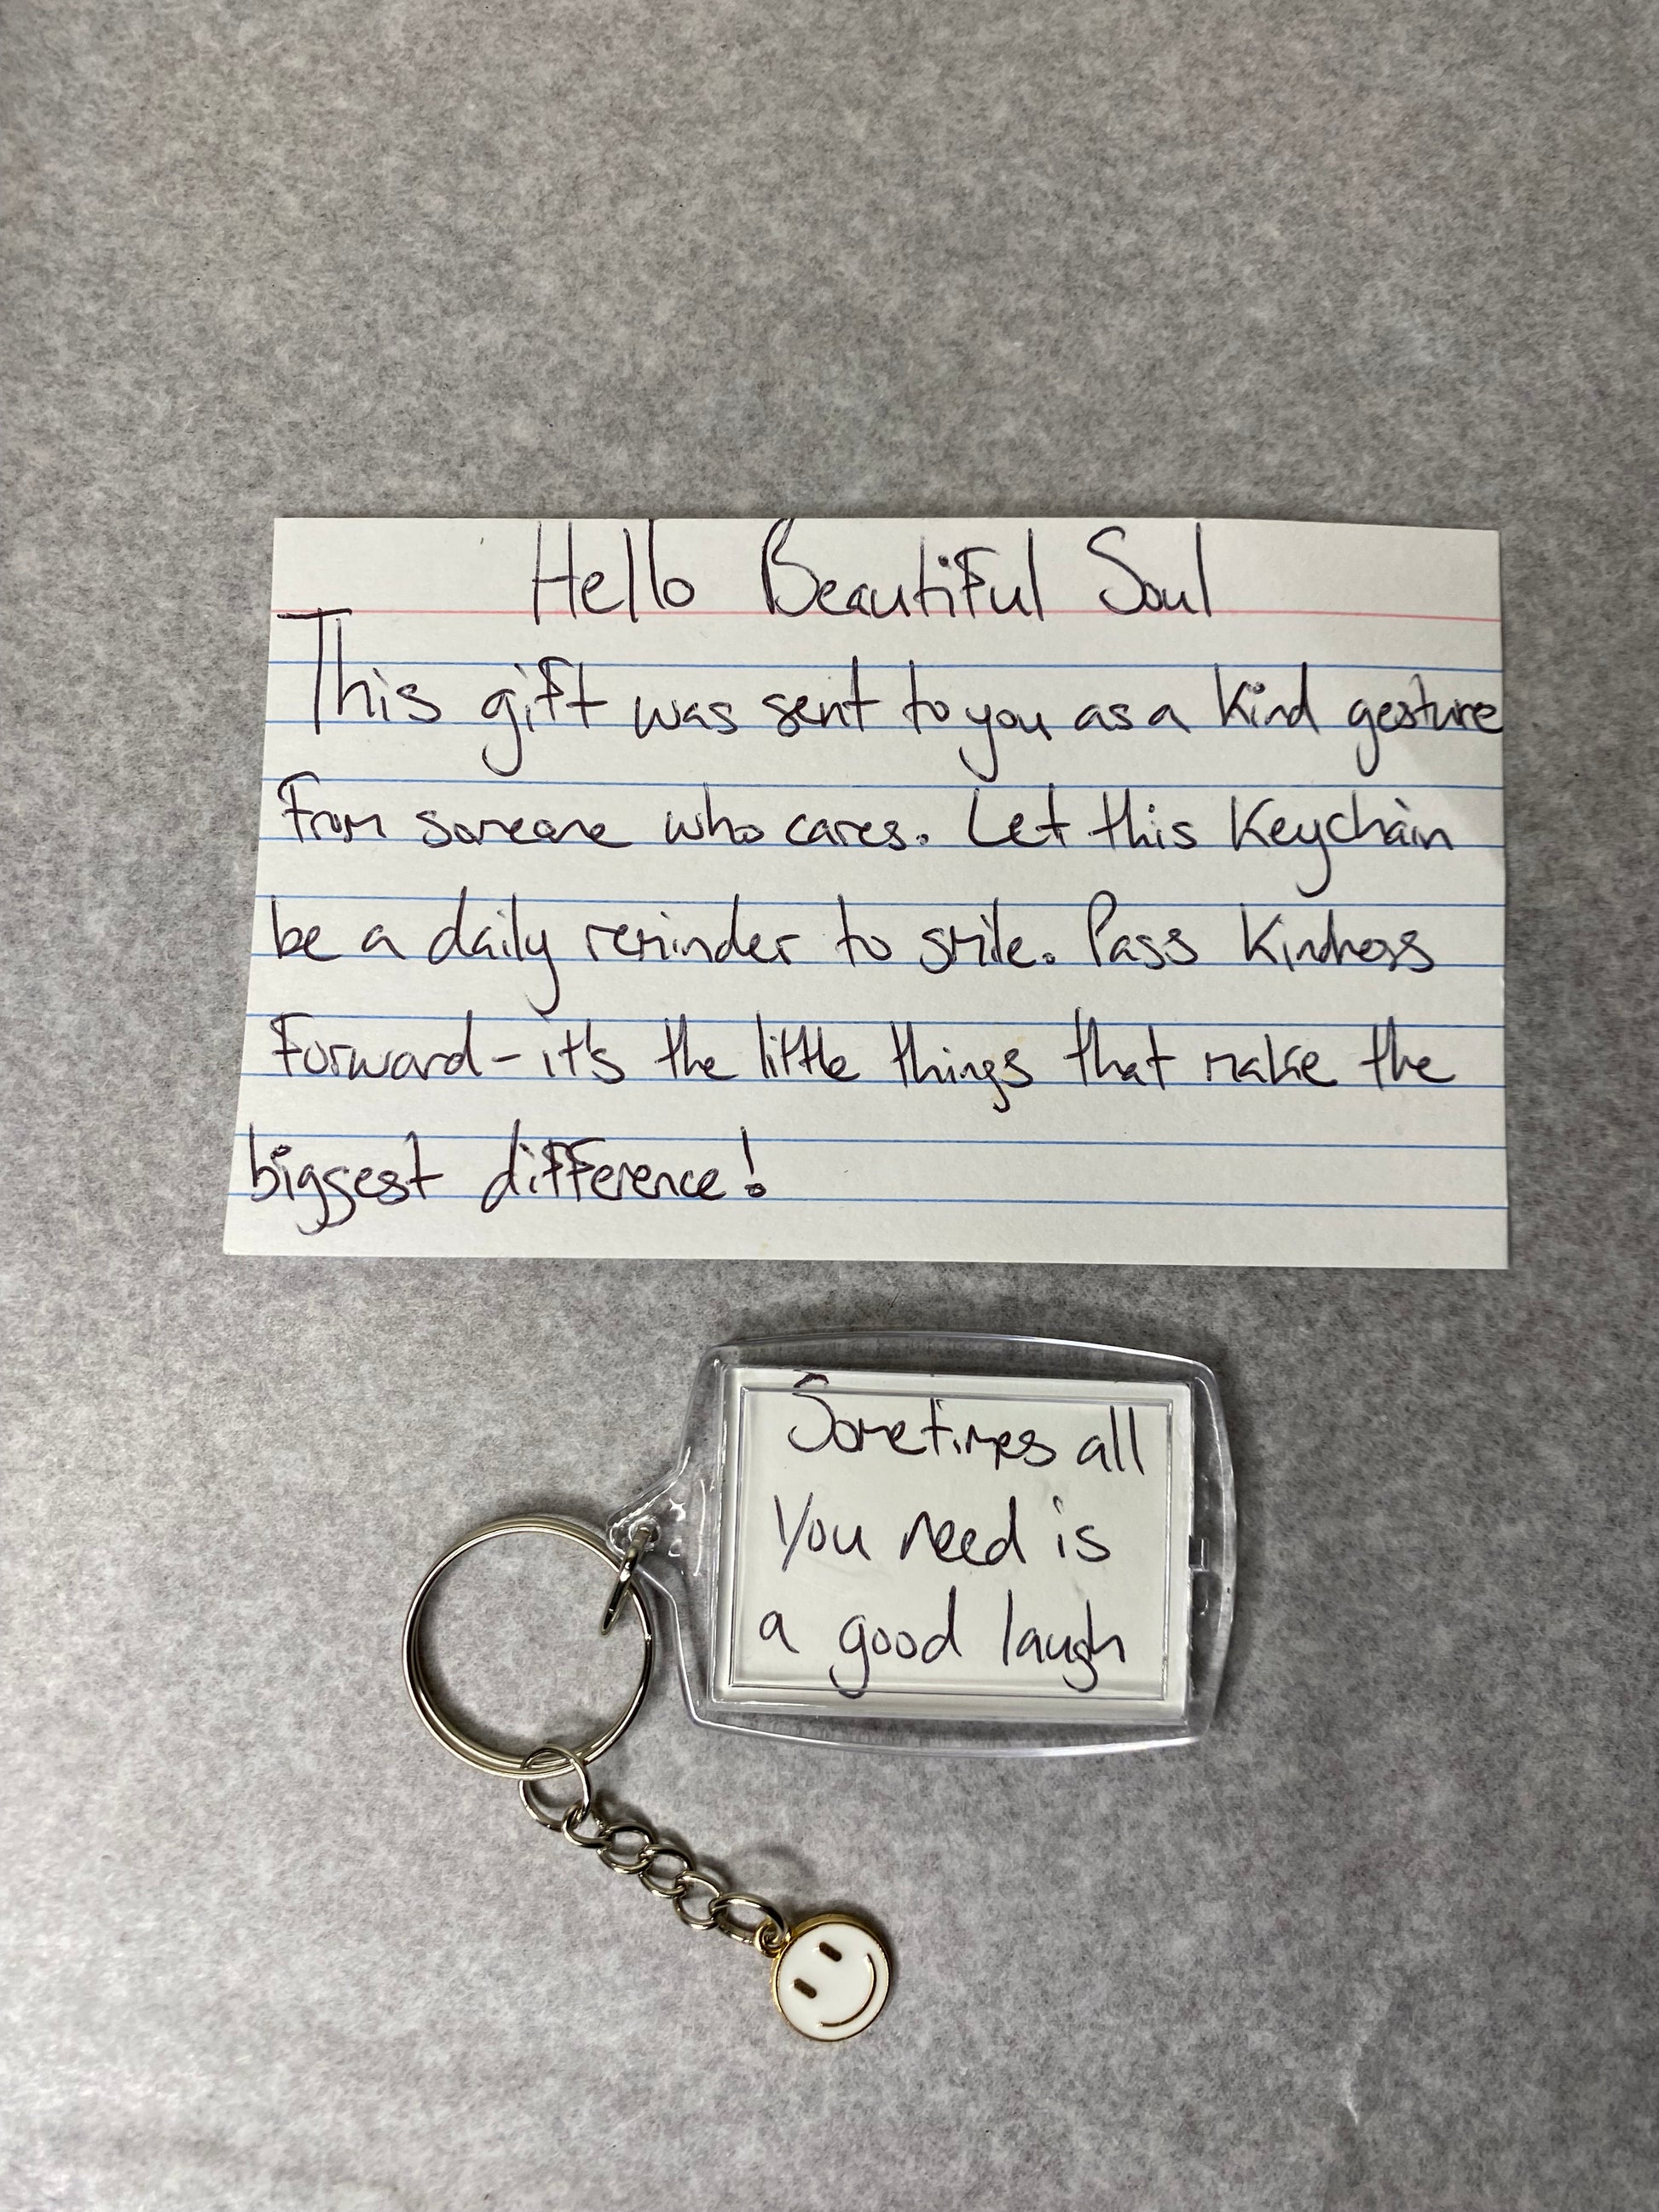 Hello Beautiful Soul
This gift was sent to you as a kind gesture
From someone who cares. Let this Keychain
be a daily reminder to smile. Pass Kindness
Forward - it's the little things that make the
biggest difference!
Sometimes all
You need is
a good laugh